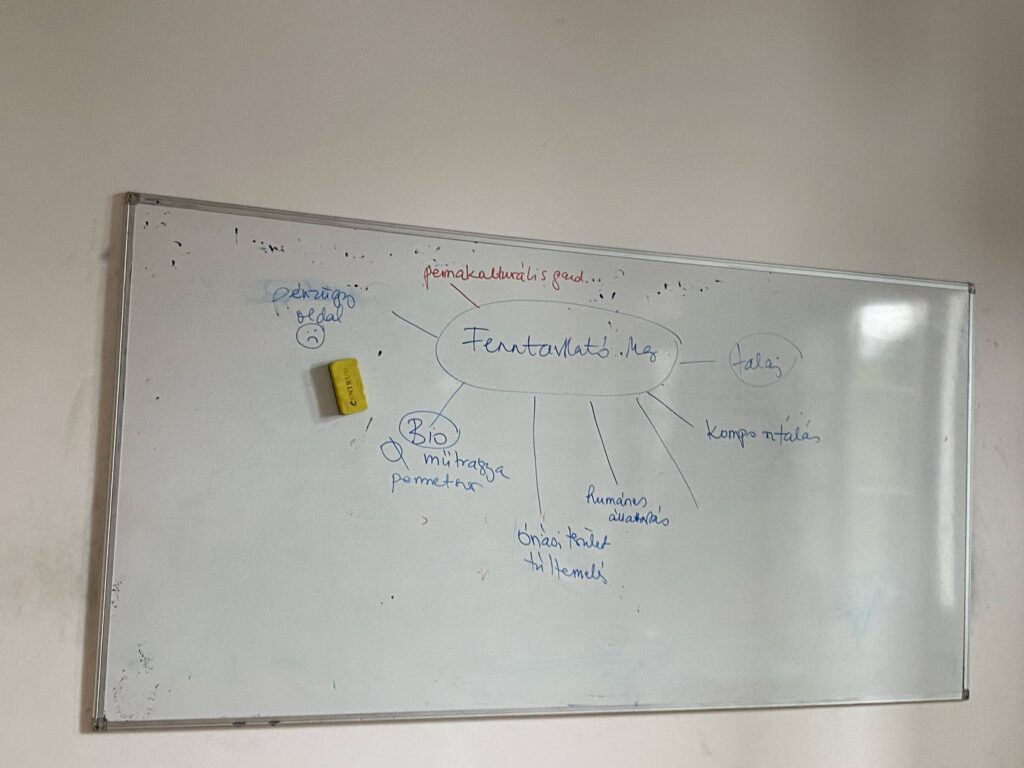 permakulturális gazd...
pénzügyi
oldal
Fenntartható Mg
talaj
Bio
Ø műtrágya
permetszer
komposztálás
humánus
állattartás
óriási terület
túltermelés
CENTRUM